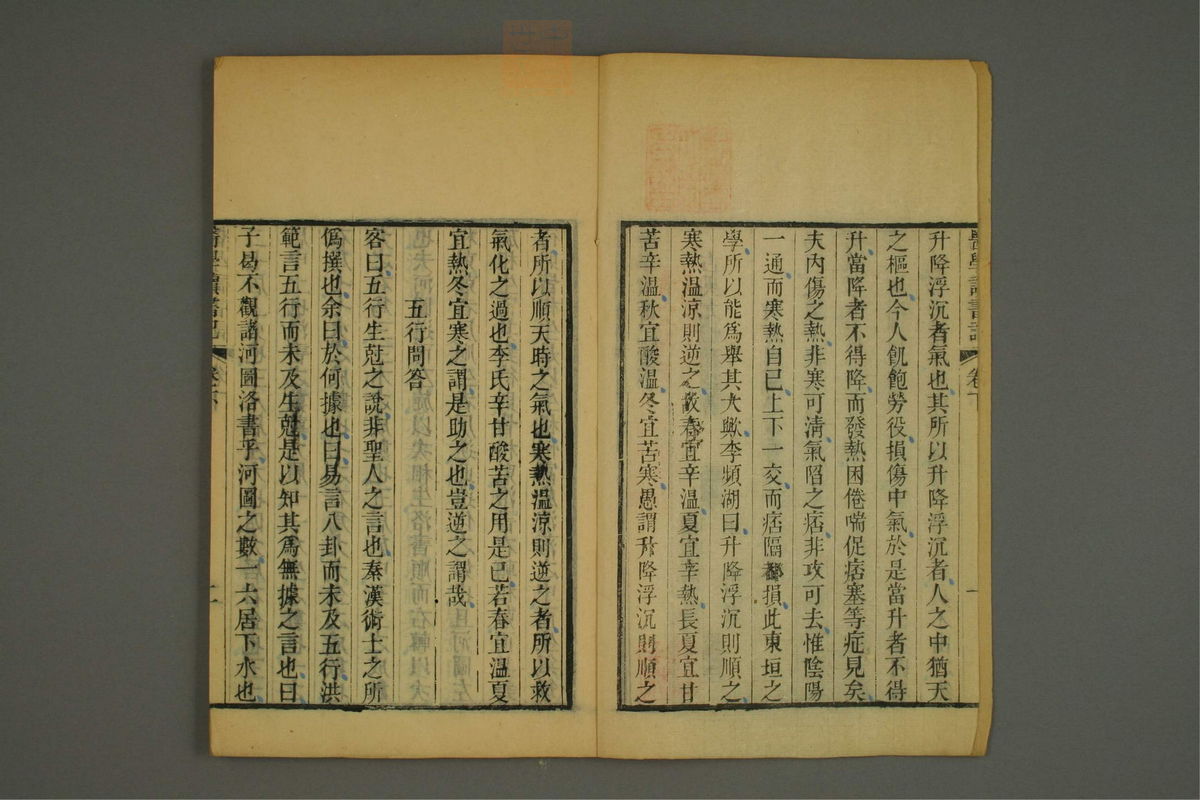 醫學讀書記 卷下 一
升降浮沉者氣也其所以升降浮沉者人之中猶天
之樞也今人飢飽勞役損傷中氣於是當升者不得
升當降者不得降而發熱困倦喘促痞塞等症見矣
夫內傷之熱非寒可清氣陷之痞非攻可去惟陰陽
一通而寒熱自已上下一交而痞隔都損此東垣之
學所以能爲舉其大歟李頻湖曰升降浮沉則順之
寒熱溫涼則逆之故春宜辛溫夏宜辛熱長夏宜甘
苦辛溫秋宜酸溫冬宜苦寒愚謂升降浮沉則順之
者所以順天時之氣也寒熱溫涼則逆之者所以救
氣化之過也李氏辛甘酸苦之用是已若春宜溫夏
宜熱冬宜寒之謂是助之也豈逆之謂哉
五行問答
客曰五行生尅之說非聖人之言也秦漢術士之所
僞撰也余曰於何據也曰易言八卦而未及五行洪
範言五行而未及生尅是以知其爲無據之言也曰
子曷不觀諸河圖洛書乎河圖之數一六居下水也
醫學讀書記 卷下 二